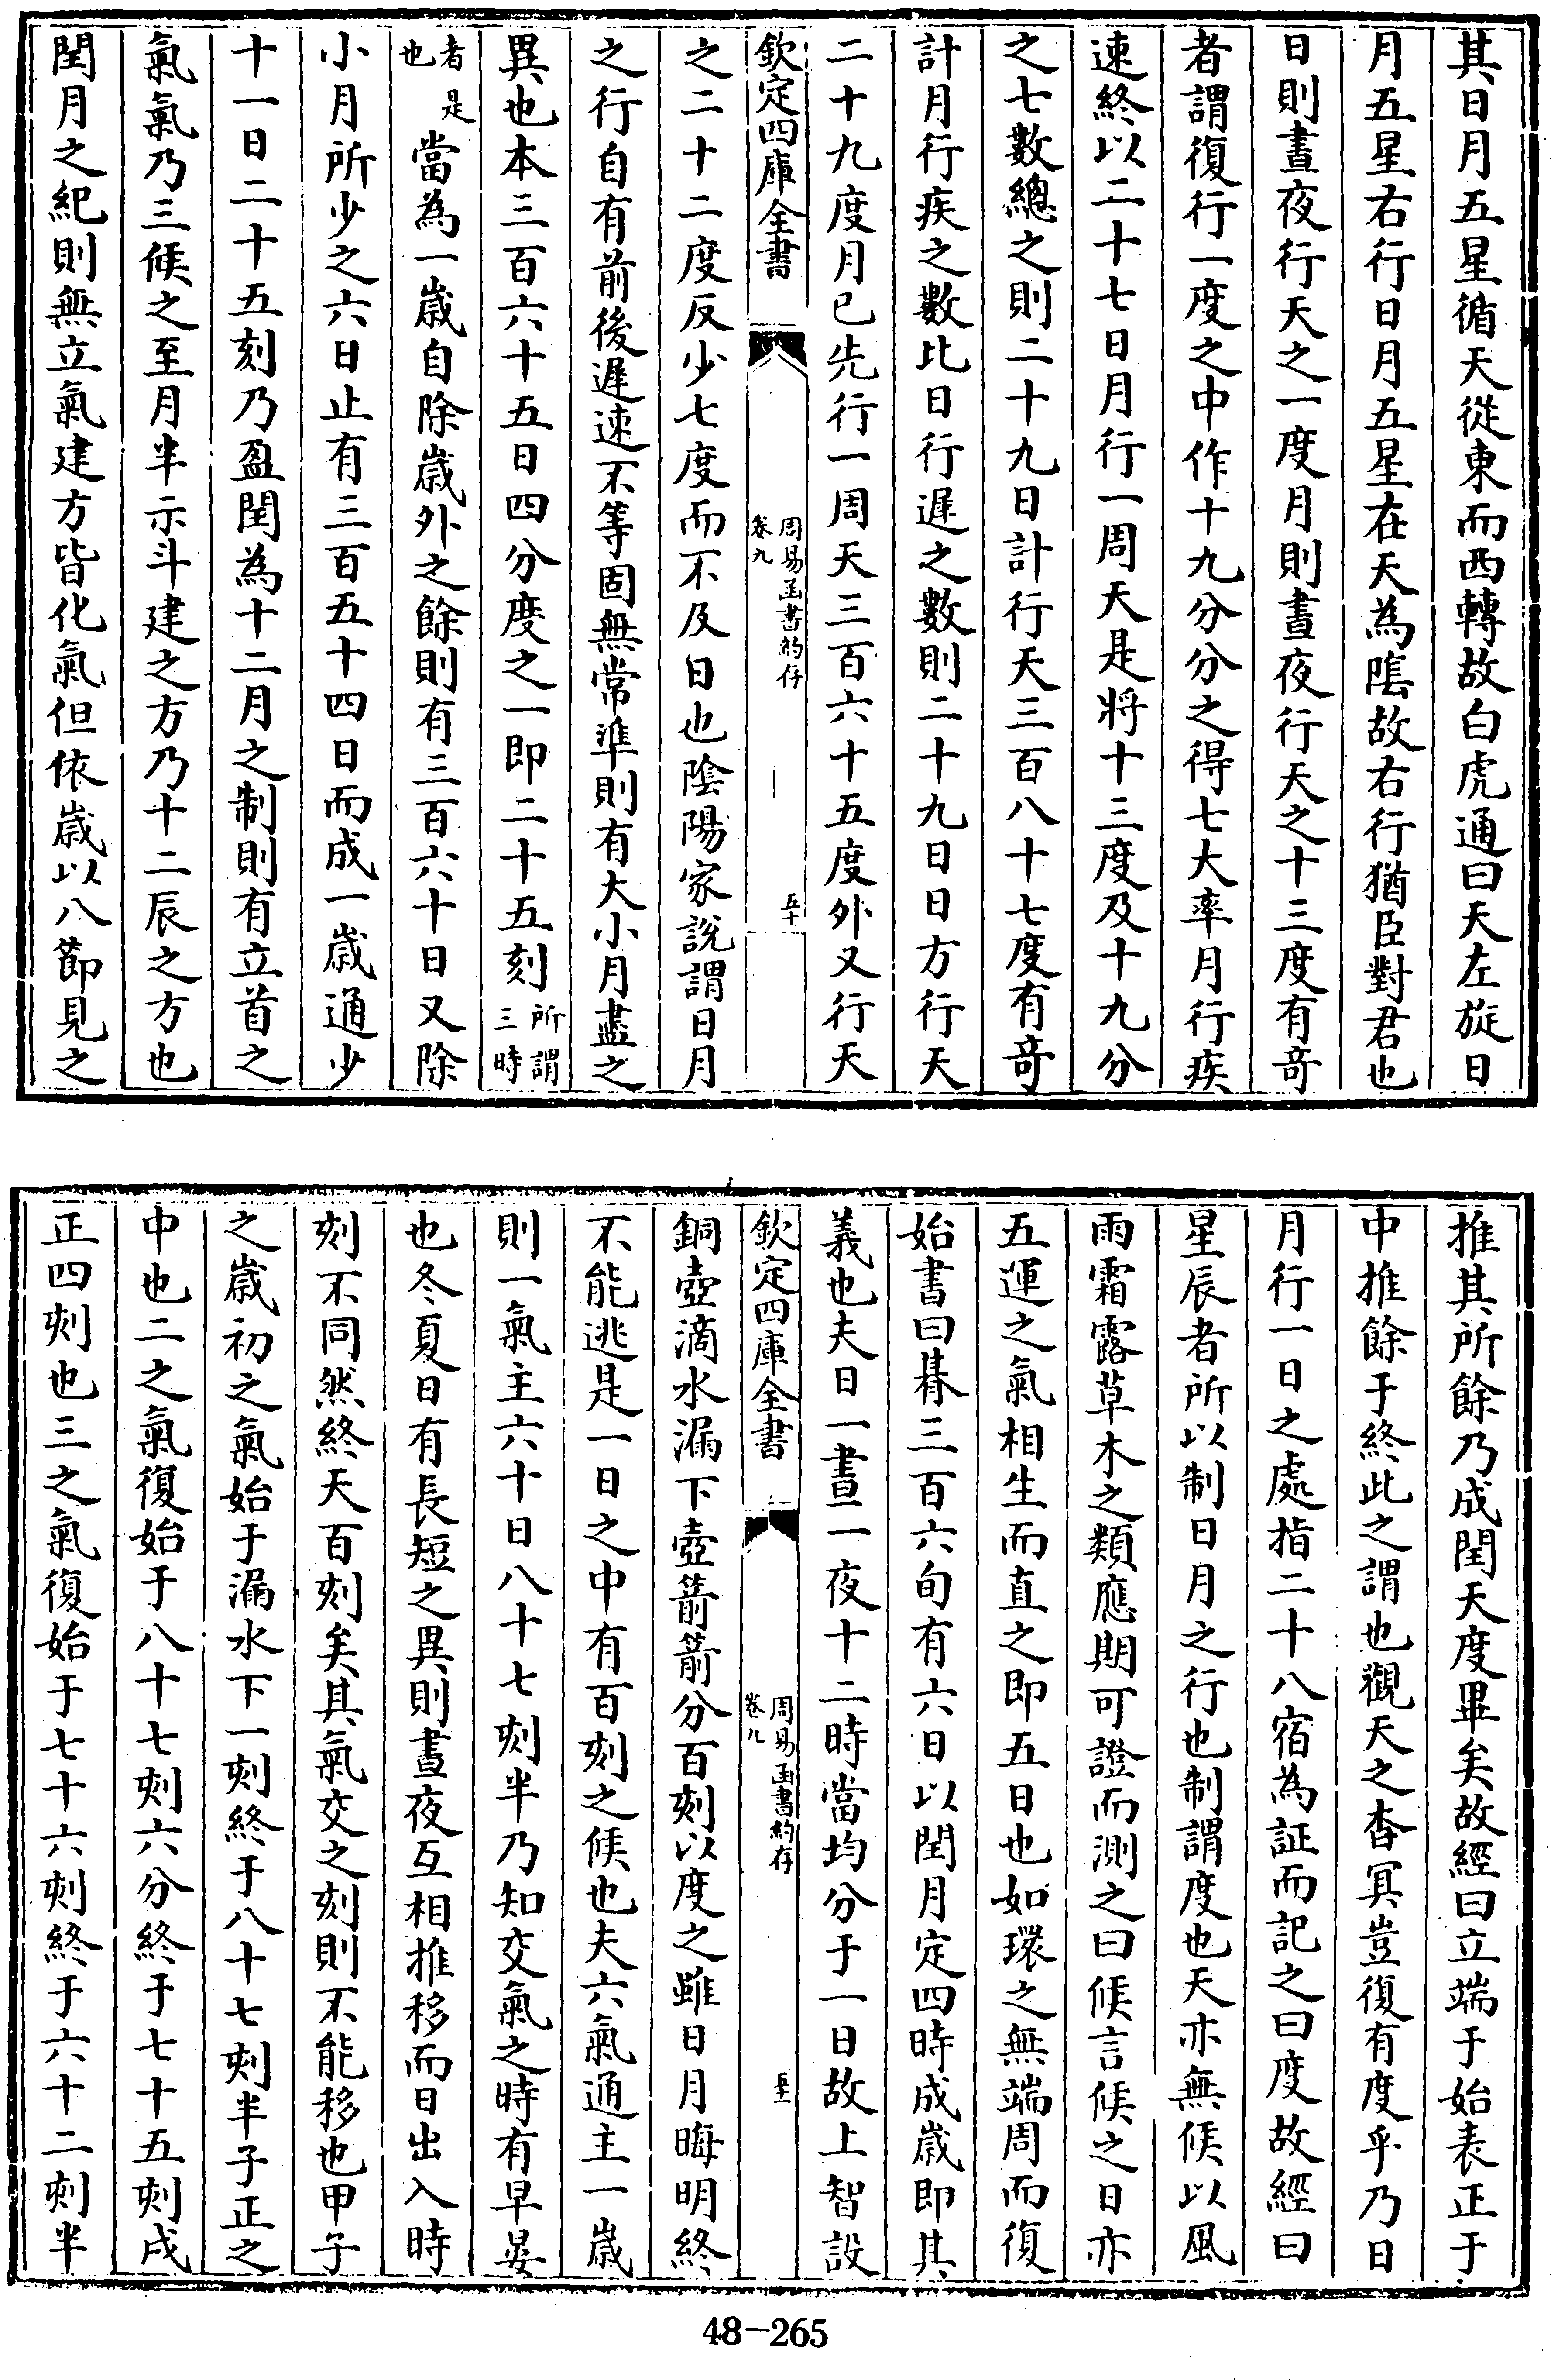 其日月五星循天從東而西轉故白虎通曰天左旋日
月五星右行日月五星在天為隂故右行猶臣對君也
日則晝夜行天之一度月則晝夜行天之十三度有竒
者謂復行一度之中作十九分分之得七大率月行疾
速終以二十七日月行一周天是將十三度及十九分
之七數總之則二十九日計行天三百八十七度有竒
計月行疾之數比日行遲之數則二十九日日方行天
二十九度月已先行一周天三百六十五度外又行天
欽定四庫全書
周易函書約存
卷九
五十
之二十二度反少七度而不及日也隂陽家說謂日月
之行自有前後遲速不等固無常準則有大小月盡之
異也本三百六十五日四分度之一即二十五刻所謂三時
者是也當為一歲自除歲外之餘則有三百六十日又除
小月所少之六日止有三百五十四日而成一歲通少
十一日二十五刻乃盈閏為十二月之制則有立首之
氣氣乃三候之至月半示斗建之方乃十二辰之方也
閏月之紀則無立氣建方皆化氣但依歲以八節見之
推其所餘乃成閏天度畢矣故經曰立端于始表正于
中推餘于終此之謂也觀天之杳冥豈復有度乎乃日
月行一日之處指二十八宿為証而記之曰度故經曰
星辰者所以制日月之行也制謂度也天亦無候以風
雨霜露草木之類應期可證而測之曰候言候之日亦
五運之氣相生而直之即五日也如環之無端周而復
始書曰朞三百六旬有六日以閏月定四時成歲即其
義也夫日一晝一夜十二時當均分于一日故上智設
欽定四庫全書
周易函書約存
卷九
五十一
銅壺滴水漏下壺箭箭分百刻以度之雖日月晦明終
不能逃是一日之中有百刻之候也夫六氣通主一歲
則一氣主六十日八十七刻半乃知交氣之時有早晏
也冬夏日有長短之異則晝夜互相推移而日出入時
刻不同然終天百刻矣其氣交之刻則不能移也甲子
之歲初之氣始于漏水下一刻終于八十七刻半子正之
中也二之氣復始于八十七刻六分終于七十五刻戌
正四刻也三之氣復始于七十六刻終于六十二刻半
48-265